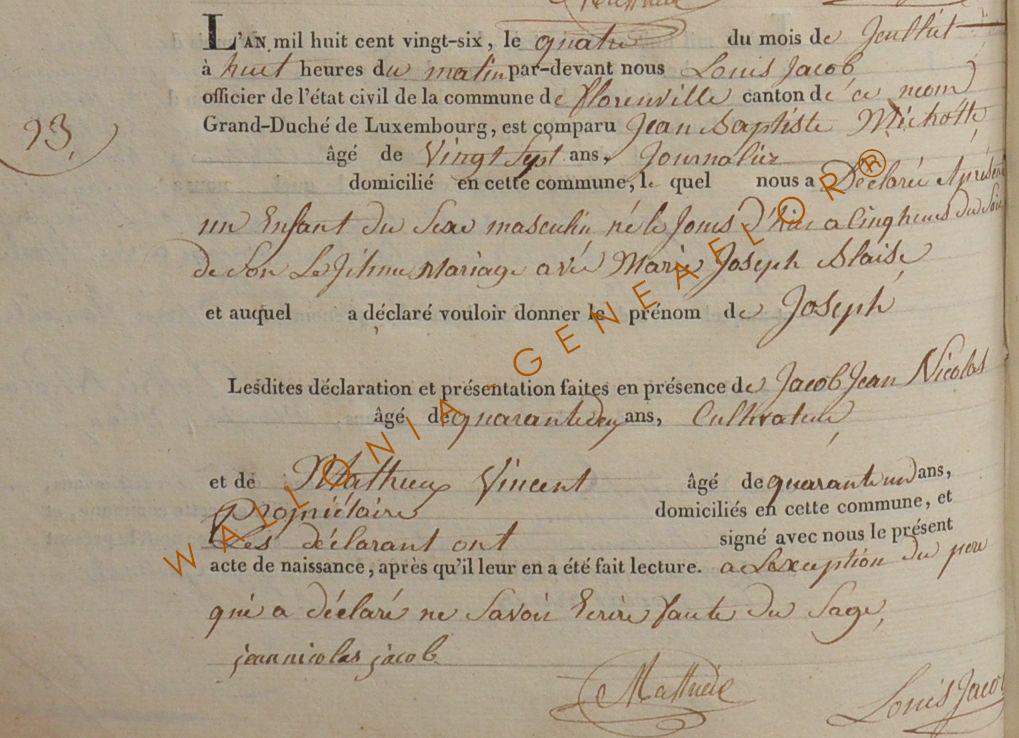 L'AN mil huit cent vingt-six, le quatre du mois de Jeullet
à huit heures du matin par-devant nous Louis Jacob
officier de l'état civil de la commune de florenville canton de ce nom
Grand-Duché de Luxembourg, est comparu Jean Baptiste Michotte
93.
âgé de Vingt Sept ans, Journalier
domicilié en cette commune, le quel nous a Déclaré A présenté
un Enfant du Sexe masculin né le Jours d'hier a Cinq heures du Soir
de Son Le Jitime Mariage avec Marie Joseph Blaise
et auquel a déclaré vouloir donner le prénom de Joseph
Lesdites déclaration et présentation faites en présence de Jacob Jean Nicolas
âgé de quarante deux ans, Cultivateur
et de Mathieu Vincent âgé de quarante un ans,
Propriétaire domiciliés en cette commune, et
Les déclarant ont signé avec nous le présent
acte de naissance, après qu'il leur en a été fait lecture. a Lexception du pere
qui a déclaré ne Savoir Ecrire faute du Sage,
jean nicolas jacob
Mathieu
Louis Jacob
WALLONIA-GENEALOR®